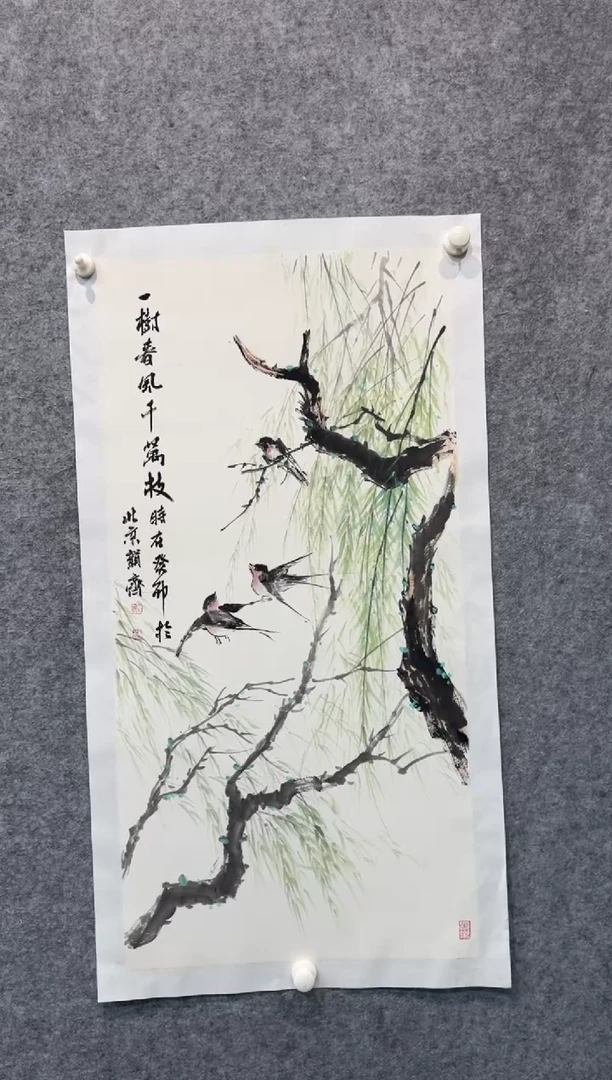 一樹春風千萬枝
時在癸卯於
北京韻齋